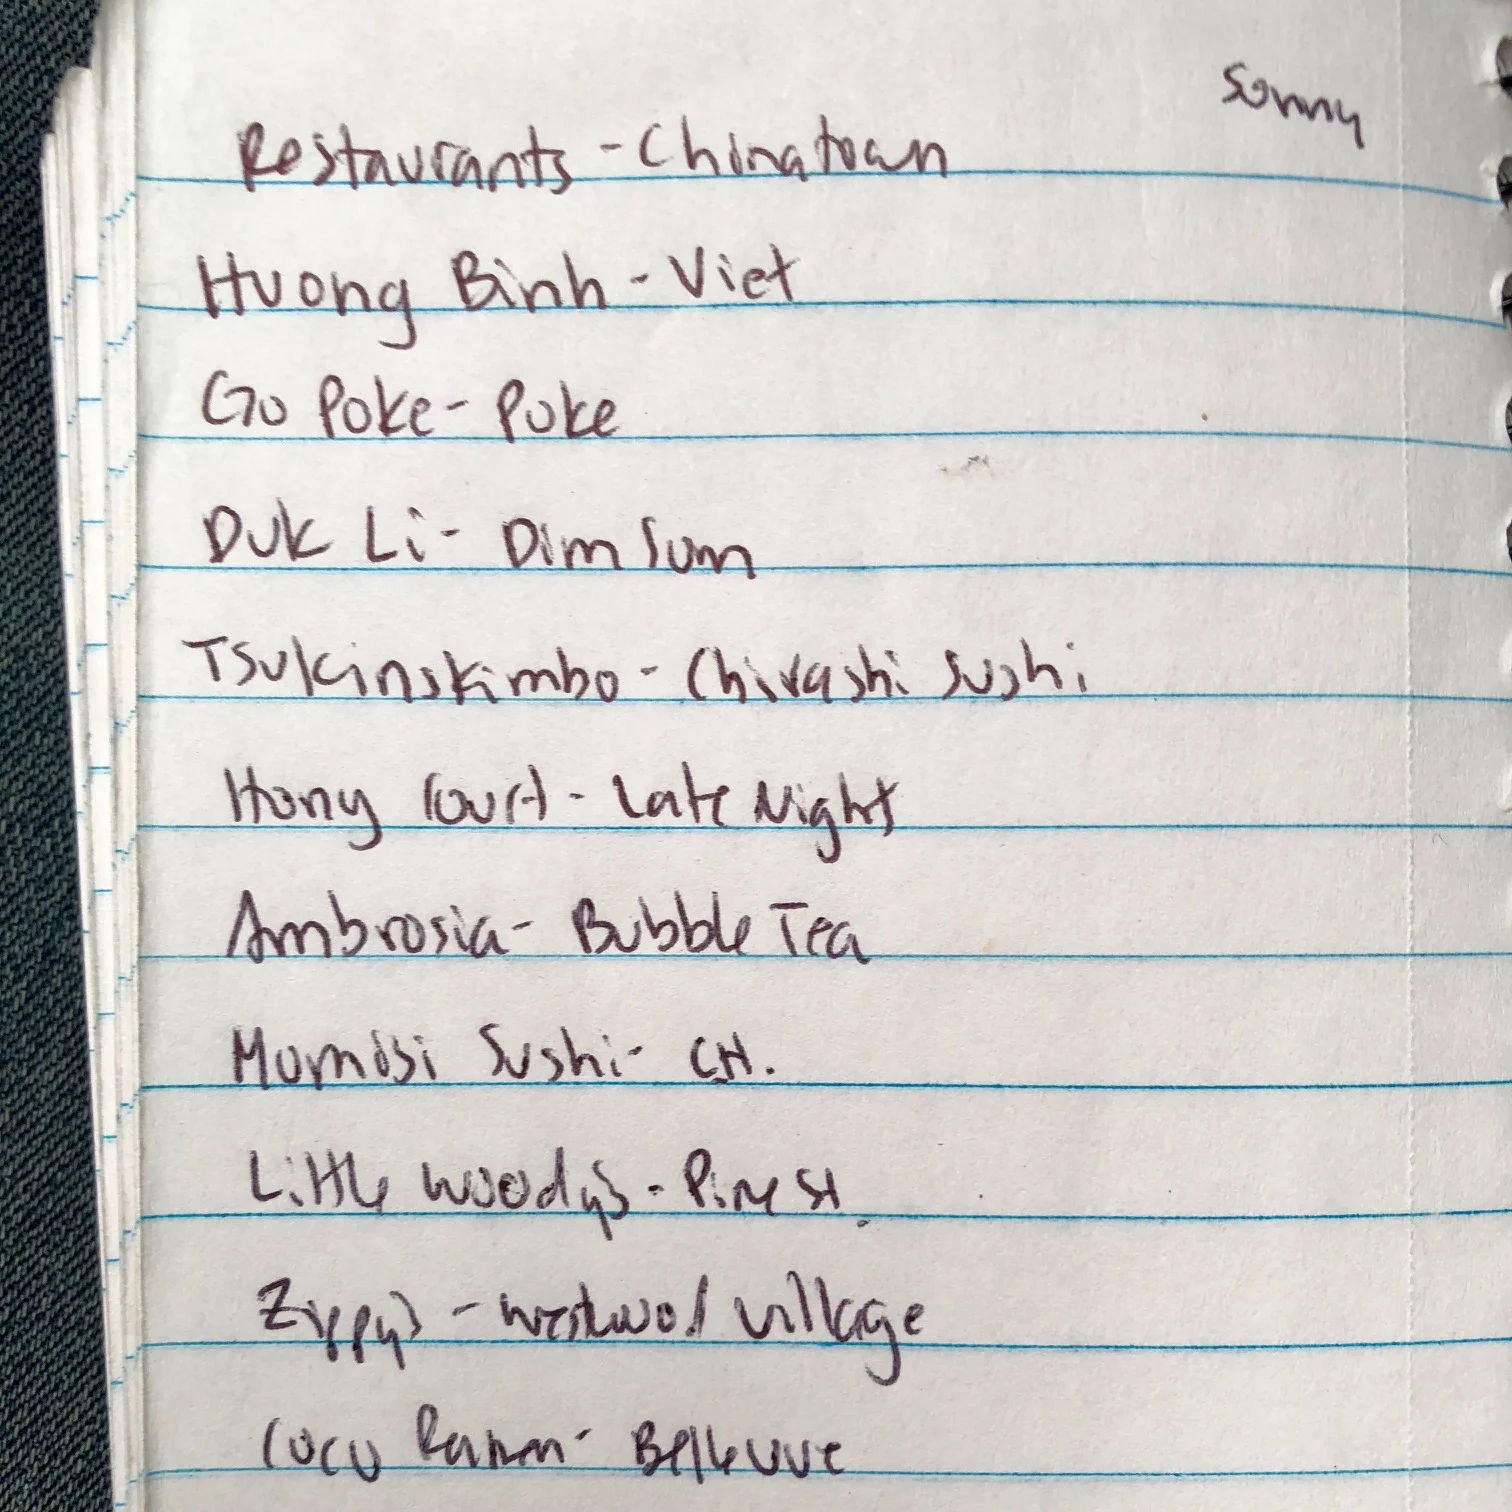 Sonny
Restaurants - Chinatown
Huong Binh - Viet
Go Poke - Poke
Duk Li - Dim Sum
Tsukinskimbo - Chirashi Sushi
Hong Court - Late Night
Ambrosia - Bubble Tea
Momosi Sushi - C.H.
Little Woody's - Pine St.
Zippy's - Westwood Village
Coco Ramen - Bellevue